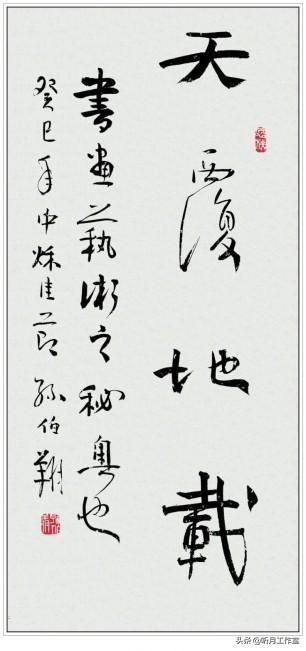 天覆地載
書畫之藝術之秘奧也
癸巳年中秋佳節孫伯翔
头条@昕月工作室